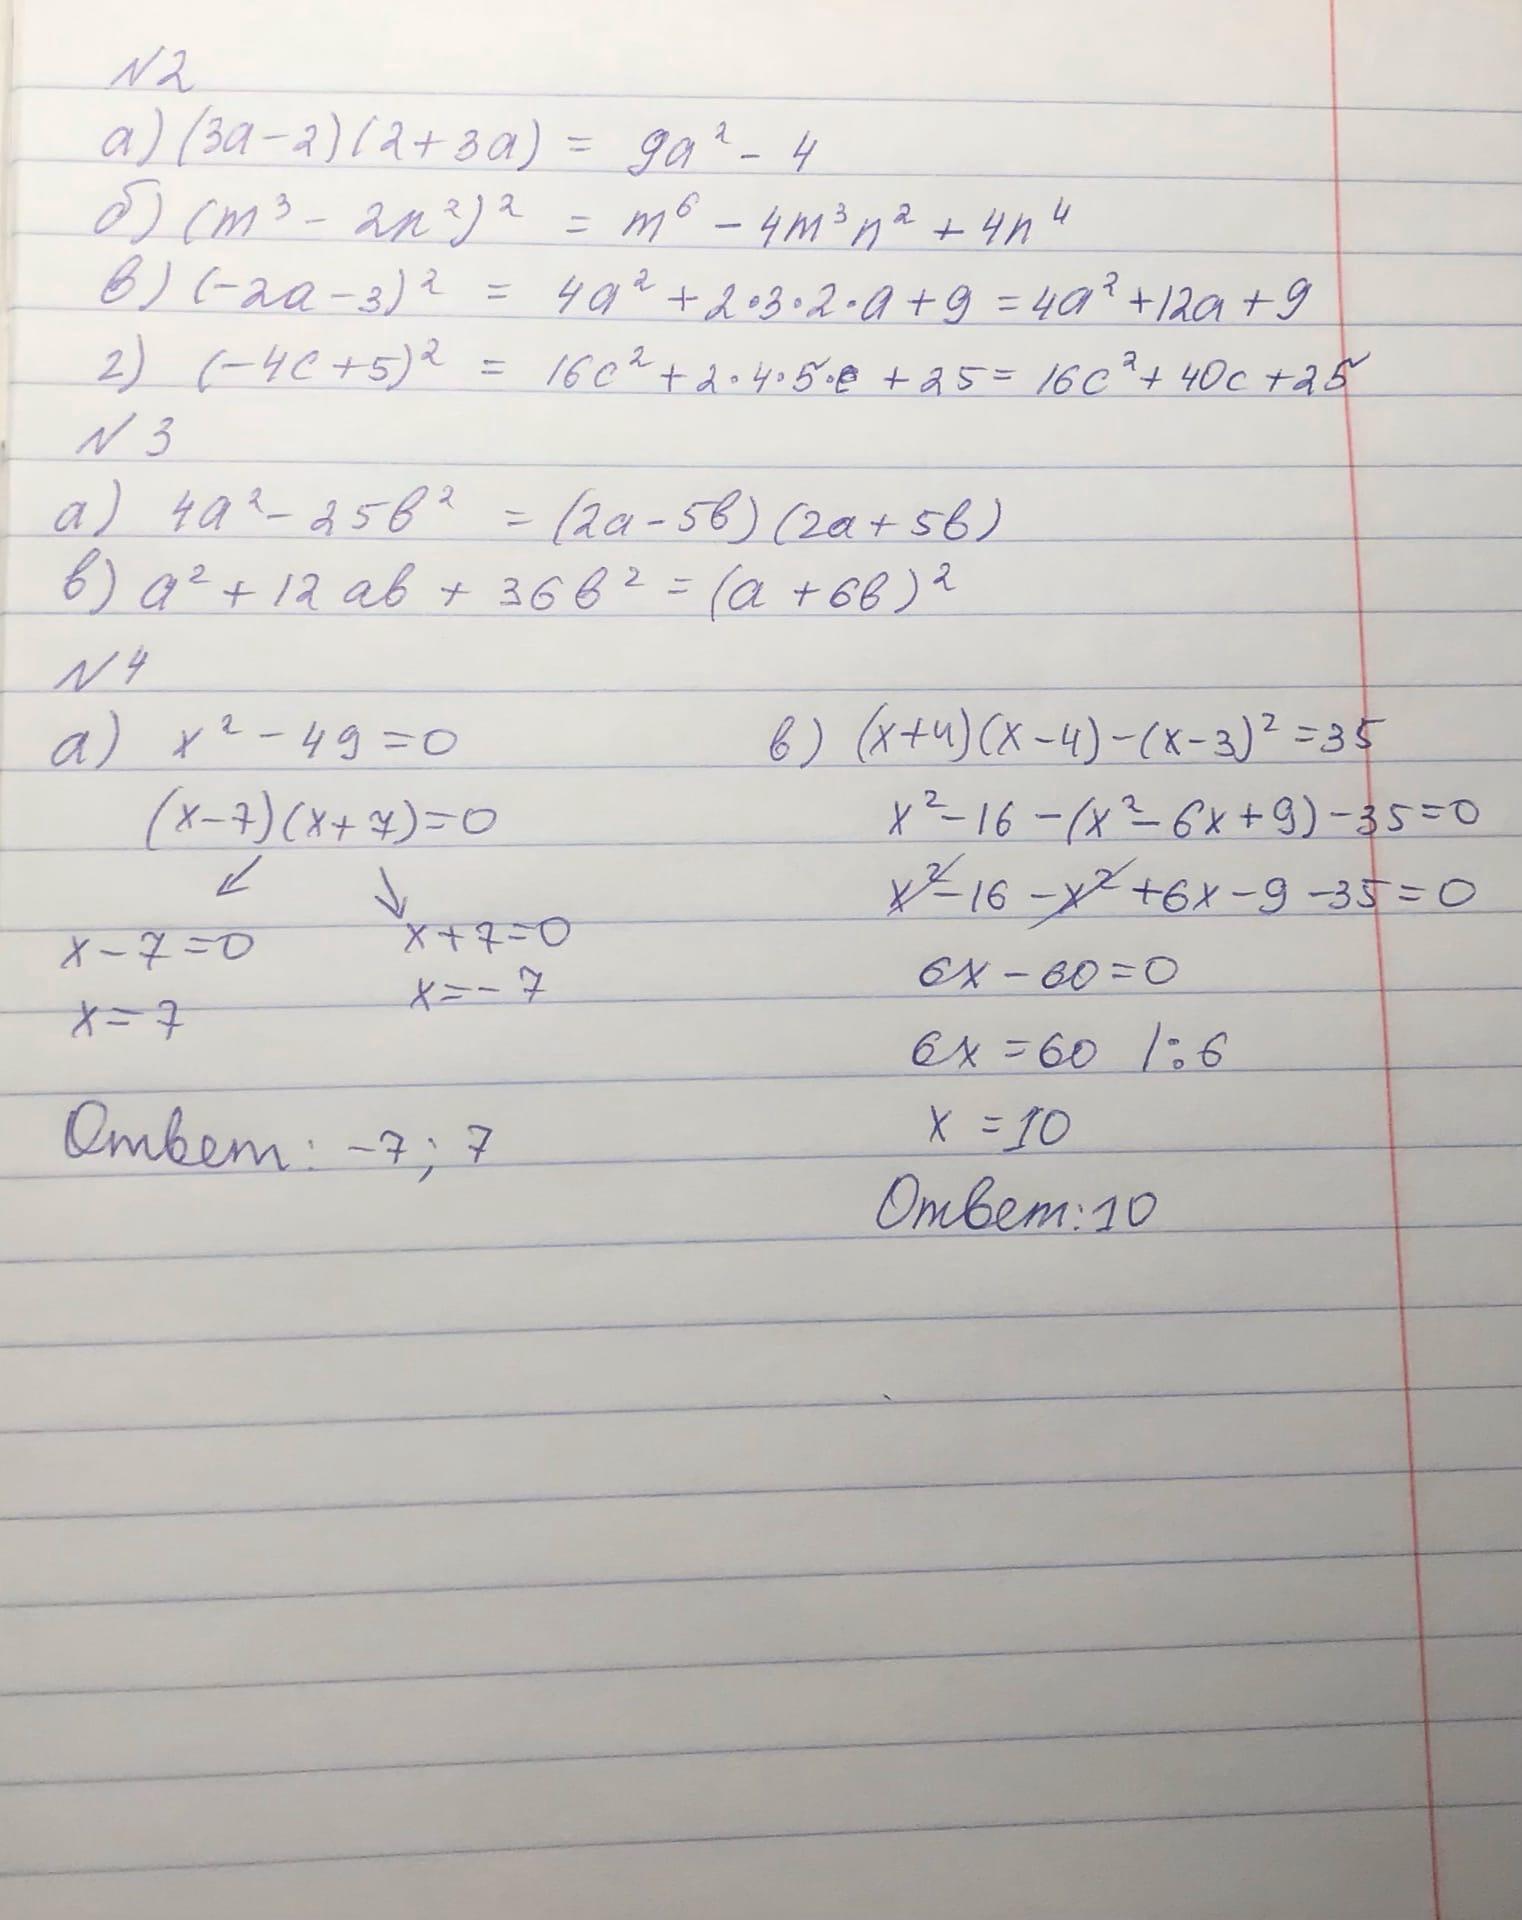 N2
а) (3a-2)(2+3a) = 9a² - 4
б) (m³ - 2n²)² = m⁶ - 4m³n² + 4n⁴
в) (-2a-3)² = 4a² + 2·3·2·a + 9 = 4a² + 12a + 9
г) (-4c+5)² = 16c² + 2·4·5·c + 25 = 16c² + 40c + 25
N3
а) 4a² - 25b² = (2a-5b)(2a+5b)
в) a² + 12ab + 36b² = (a+6b)²
N4
а) x² - 49 = 0
(x-7)(x+7)=0
↙ ↘
x-7=0 x+7=0
x=7 x=-7
Ответ: -7; 7
в) (x+4)(x-4)-(x-3)²=35
x²-16-(x²-6x+9)-35=0
x²-16-x²+6x-9-35=0
6x-60=0
6x=60 |:6
x=10
Ответ:10